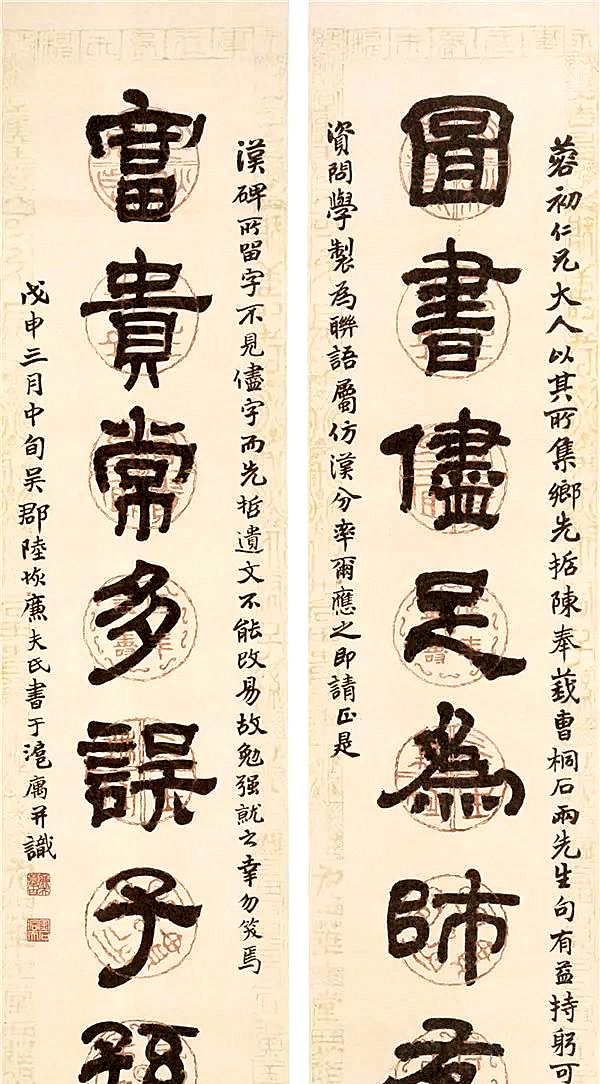 蓉初仁兄大人以其所集鄉先哲陳奉莪曹桐石兩先生句有益持躬可
圖書儘足為師
資問學製為聯語屬仿漢分率爾應之即請正是
漢碑所留字不見儘字而先哲遺文不能改易故勉强就之幸勿笑焉
富貴常多誤子孫
戊申三月中旬吴郡陸恢廉夫氏書于滬寓并識